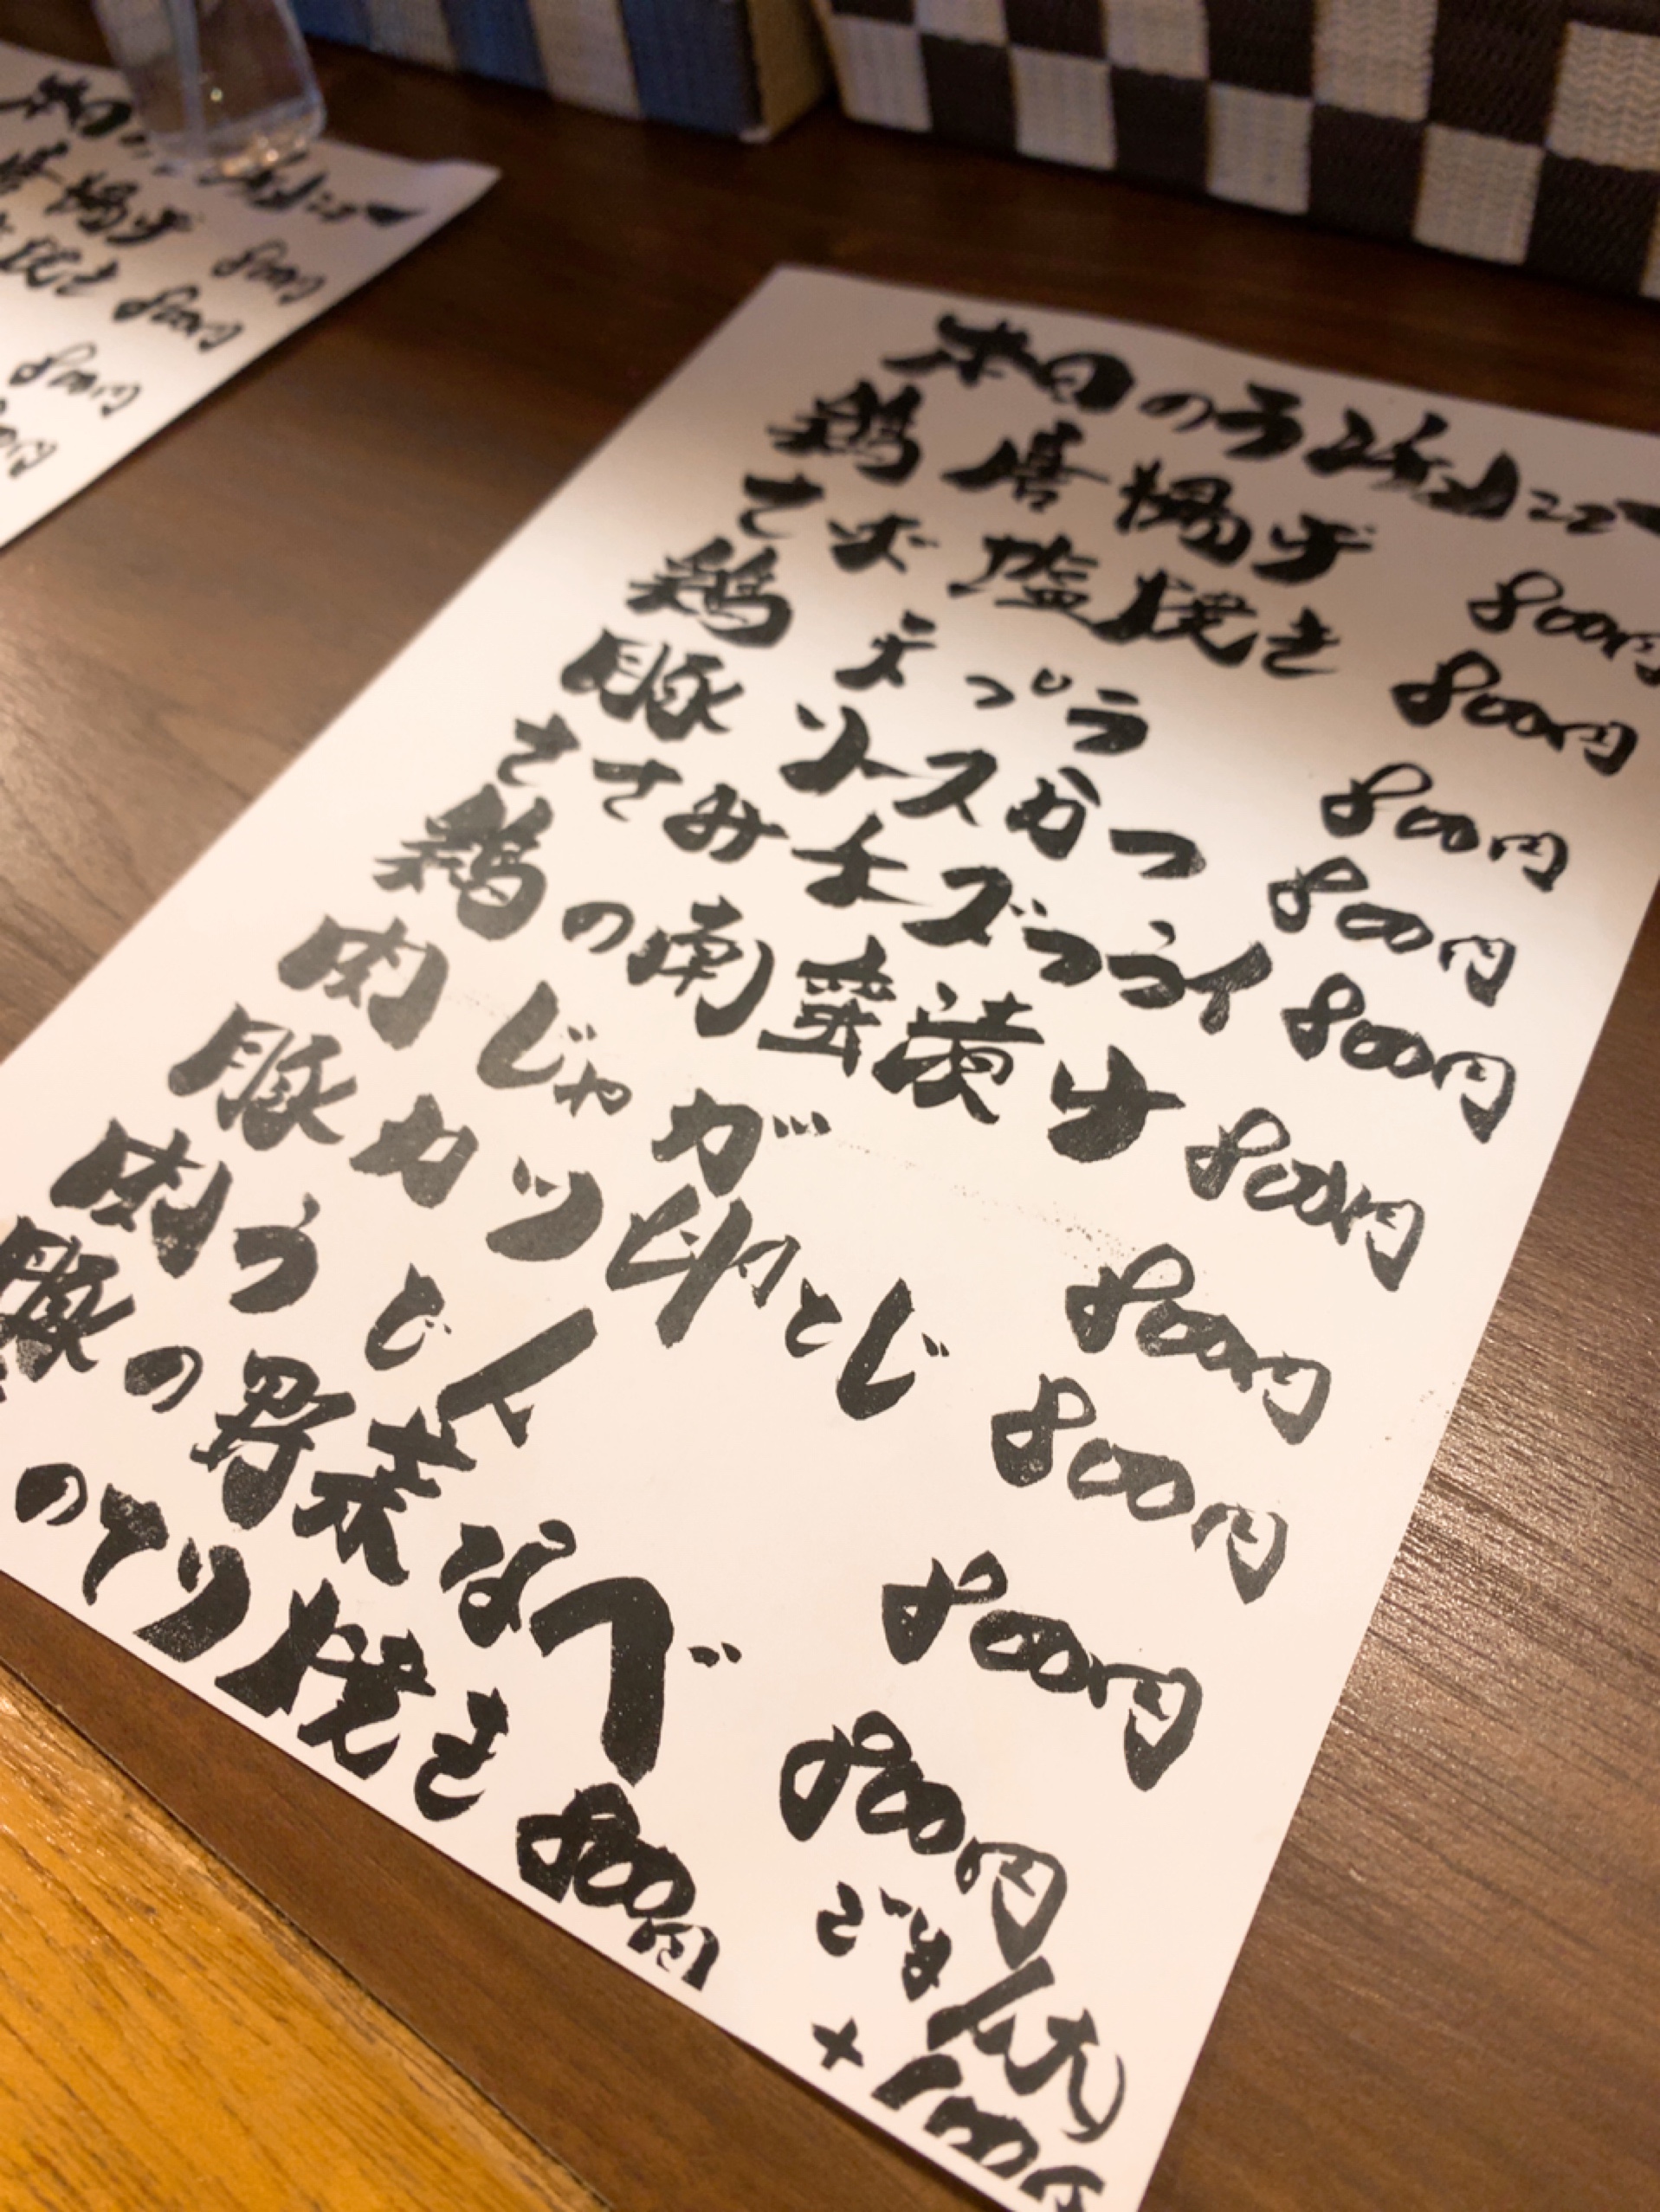 本日のランチメニュー
鶏唐揚げ 800円
さば塩焼き 800円
鶏天つ゜ら 800円
豚ソースかつ 800円
ささみチーズフライ 800円
鶏の南蛮漬け 800円
肉じゃが 800円
豚カツ卵とじ 800円
肉うどん 800円
豚の野菜なべ 800円
のてり焼き 800円
ごはん大
+100円
唐揚げ 800円
焼き 800円
800円